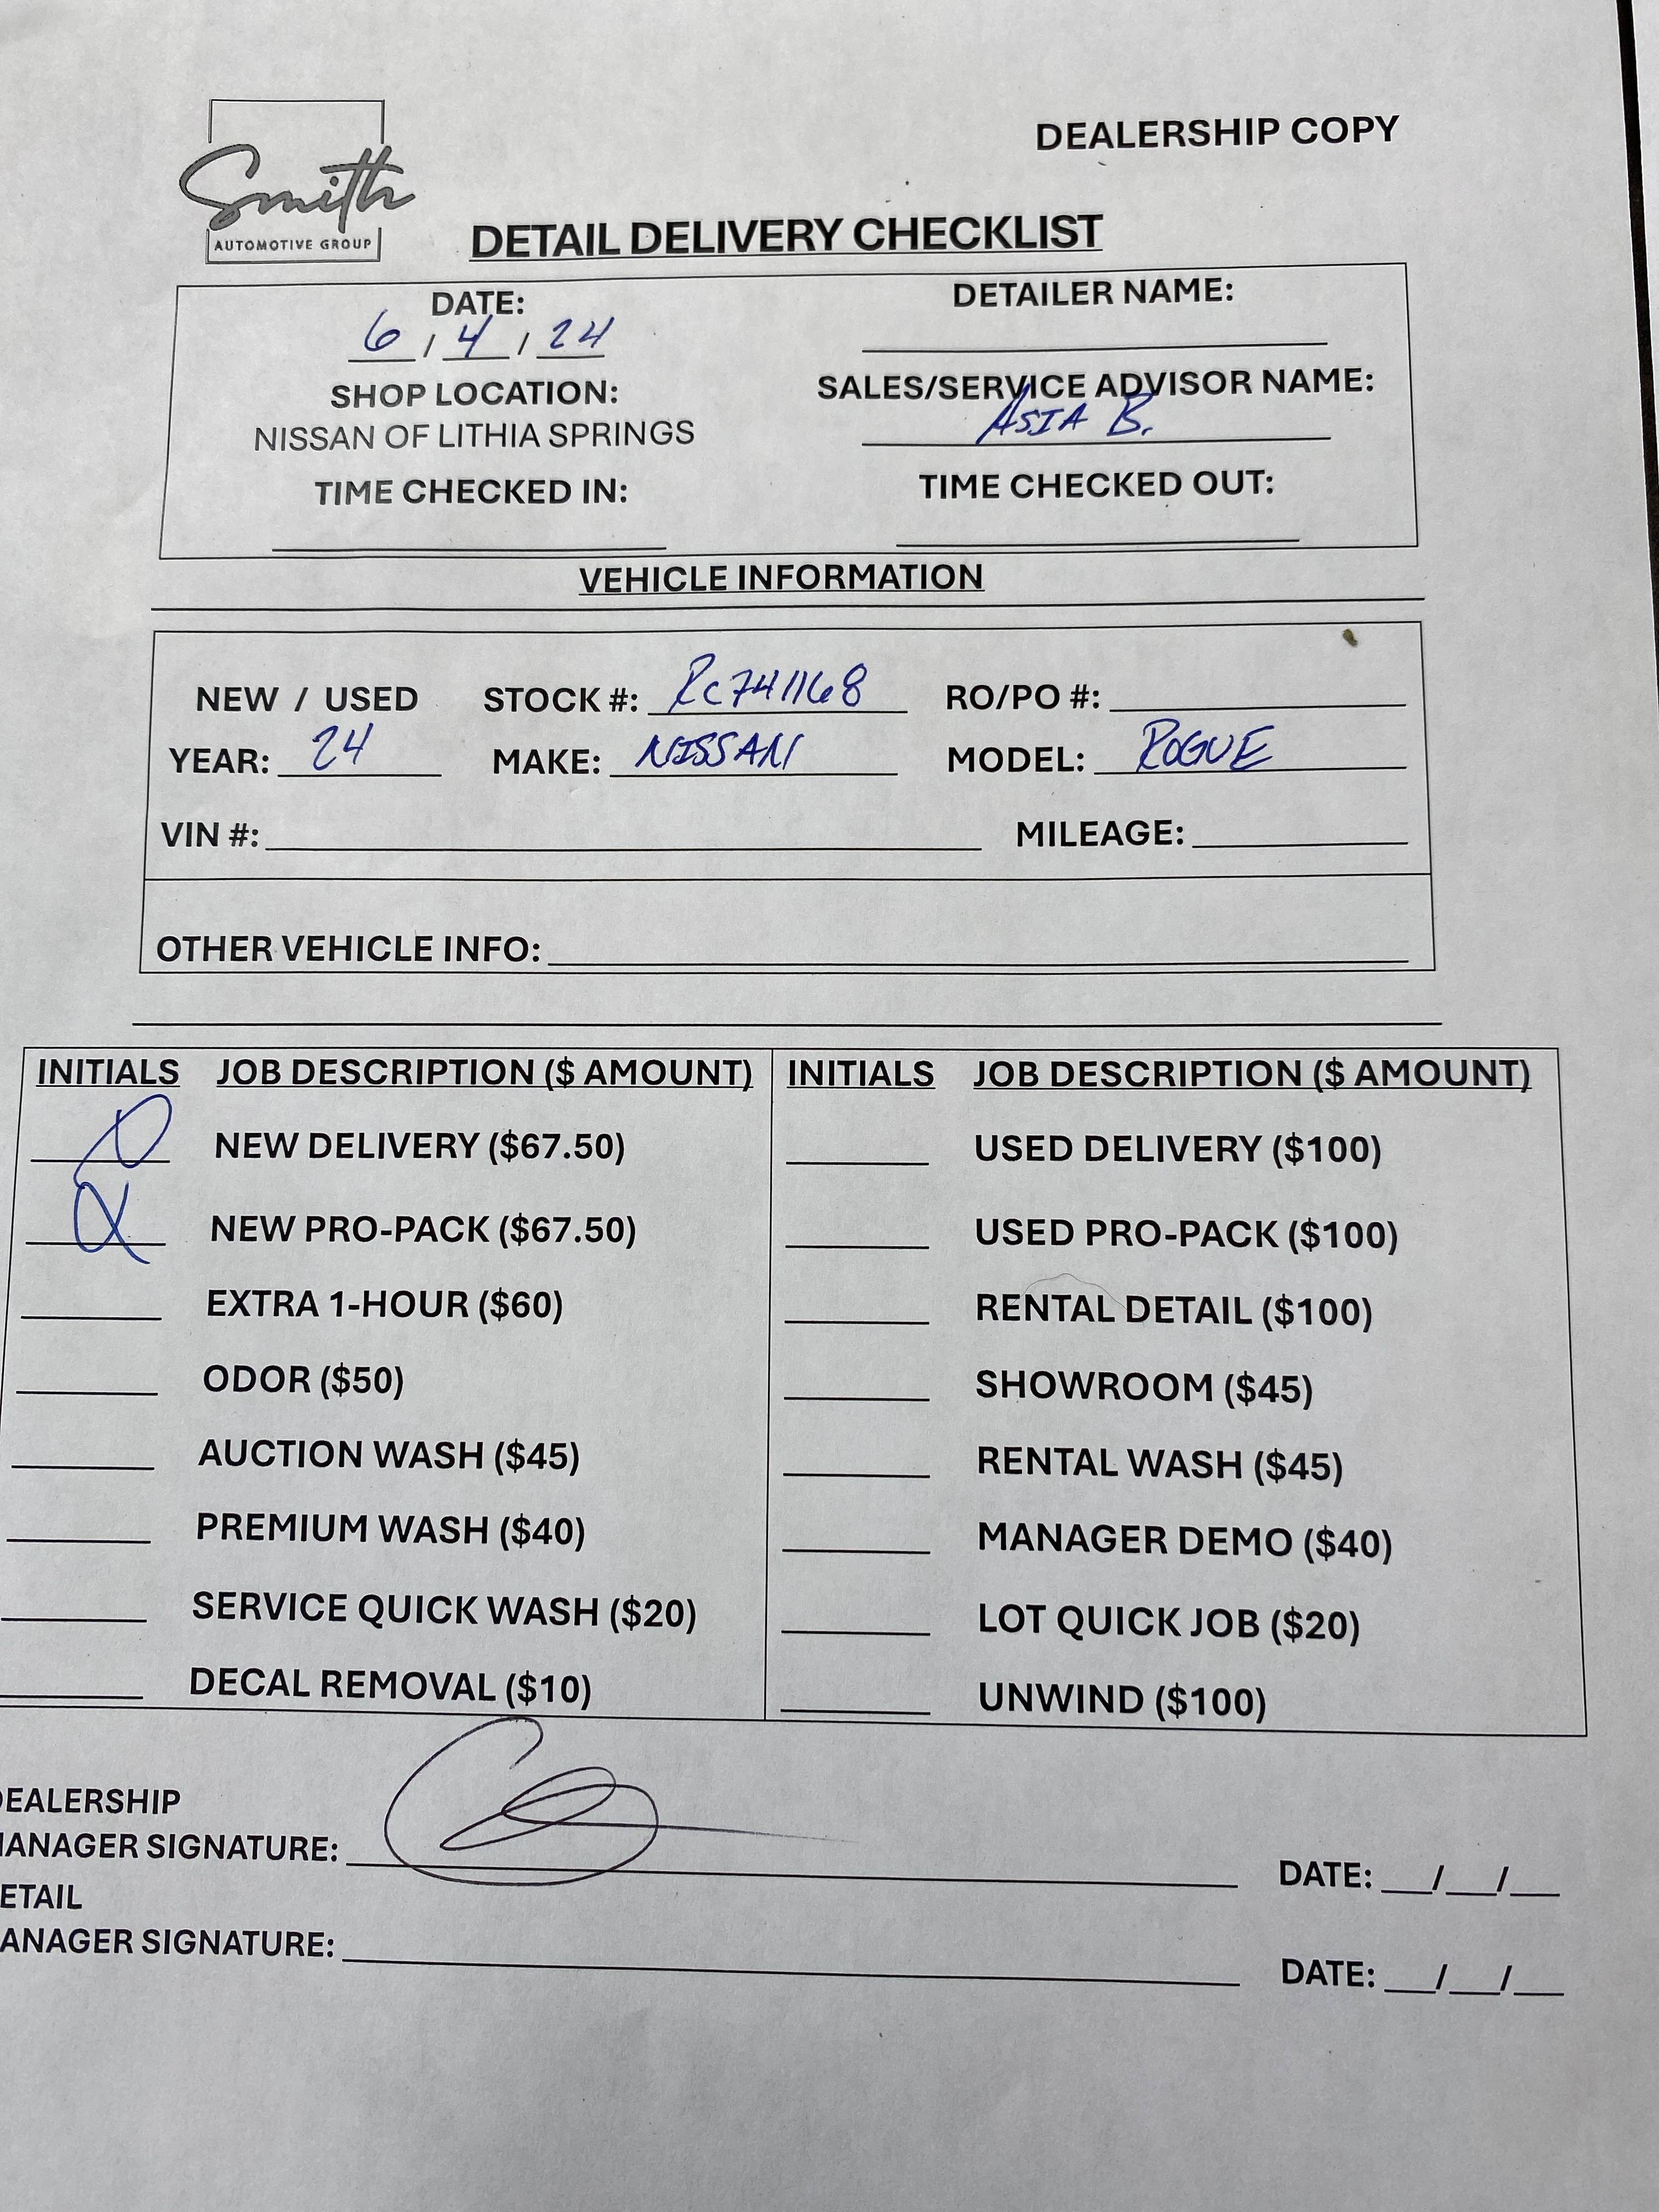 DEALERSHIP COPY
Smith
AUTOMOTIVE GROUP
DETAIL DELIVERY CHECKLIST
DATE:
6 / 4 / 24
SHOP LOCATION:
NISSAN OF LITHIA SPRINGS
TIME CHECKED IN:
DETAILER NAME:
SALES/SERVICE ADVISOR NAME:
ASIA B.
TIME CHECKED OUT:
VEHICLE INFORMATION
NEW / USED STOCK #: RC741168 RO/PO #:
YEAR: 24 MAKE: NISSAN MODEL: ROGUE
VIN #: MILEAGE:
OTHER VEHICLE INFO:
INITIALS JOB DESCRIPTION ($ AMOUNT)
NEW DELIVERY ($67.50)
NEW PRO-PACK ($67.50)
EXTRA 1-HOUR ($60)
ODOR ($50)
AUCTION WASH ($45)
PREMIUM WASH ($40)
SERVICE QUICK WASH ($20)
DECAL REMOVAL ($10)
INITIALS JOB DESCRIPTION ($ AMOUNT)
USED DELIVERY ($100)
USED PRO-PACK ($100)
RENTAL DETAIL ($100)
SHOWROOM ($45)
RENTAL WASH ($45)
MANAGER DEMO ($40)
LOT QUICK JOB ($20)
UNWIND ($100)
EALERSHIP
ANAGER SIGNATURE: DATE: __/__/__
ETAIL
ANAGER SIGNATURE: DATE: __/__/__